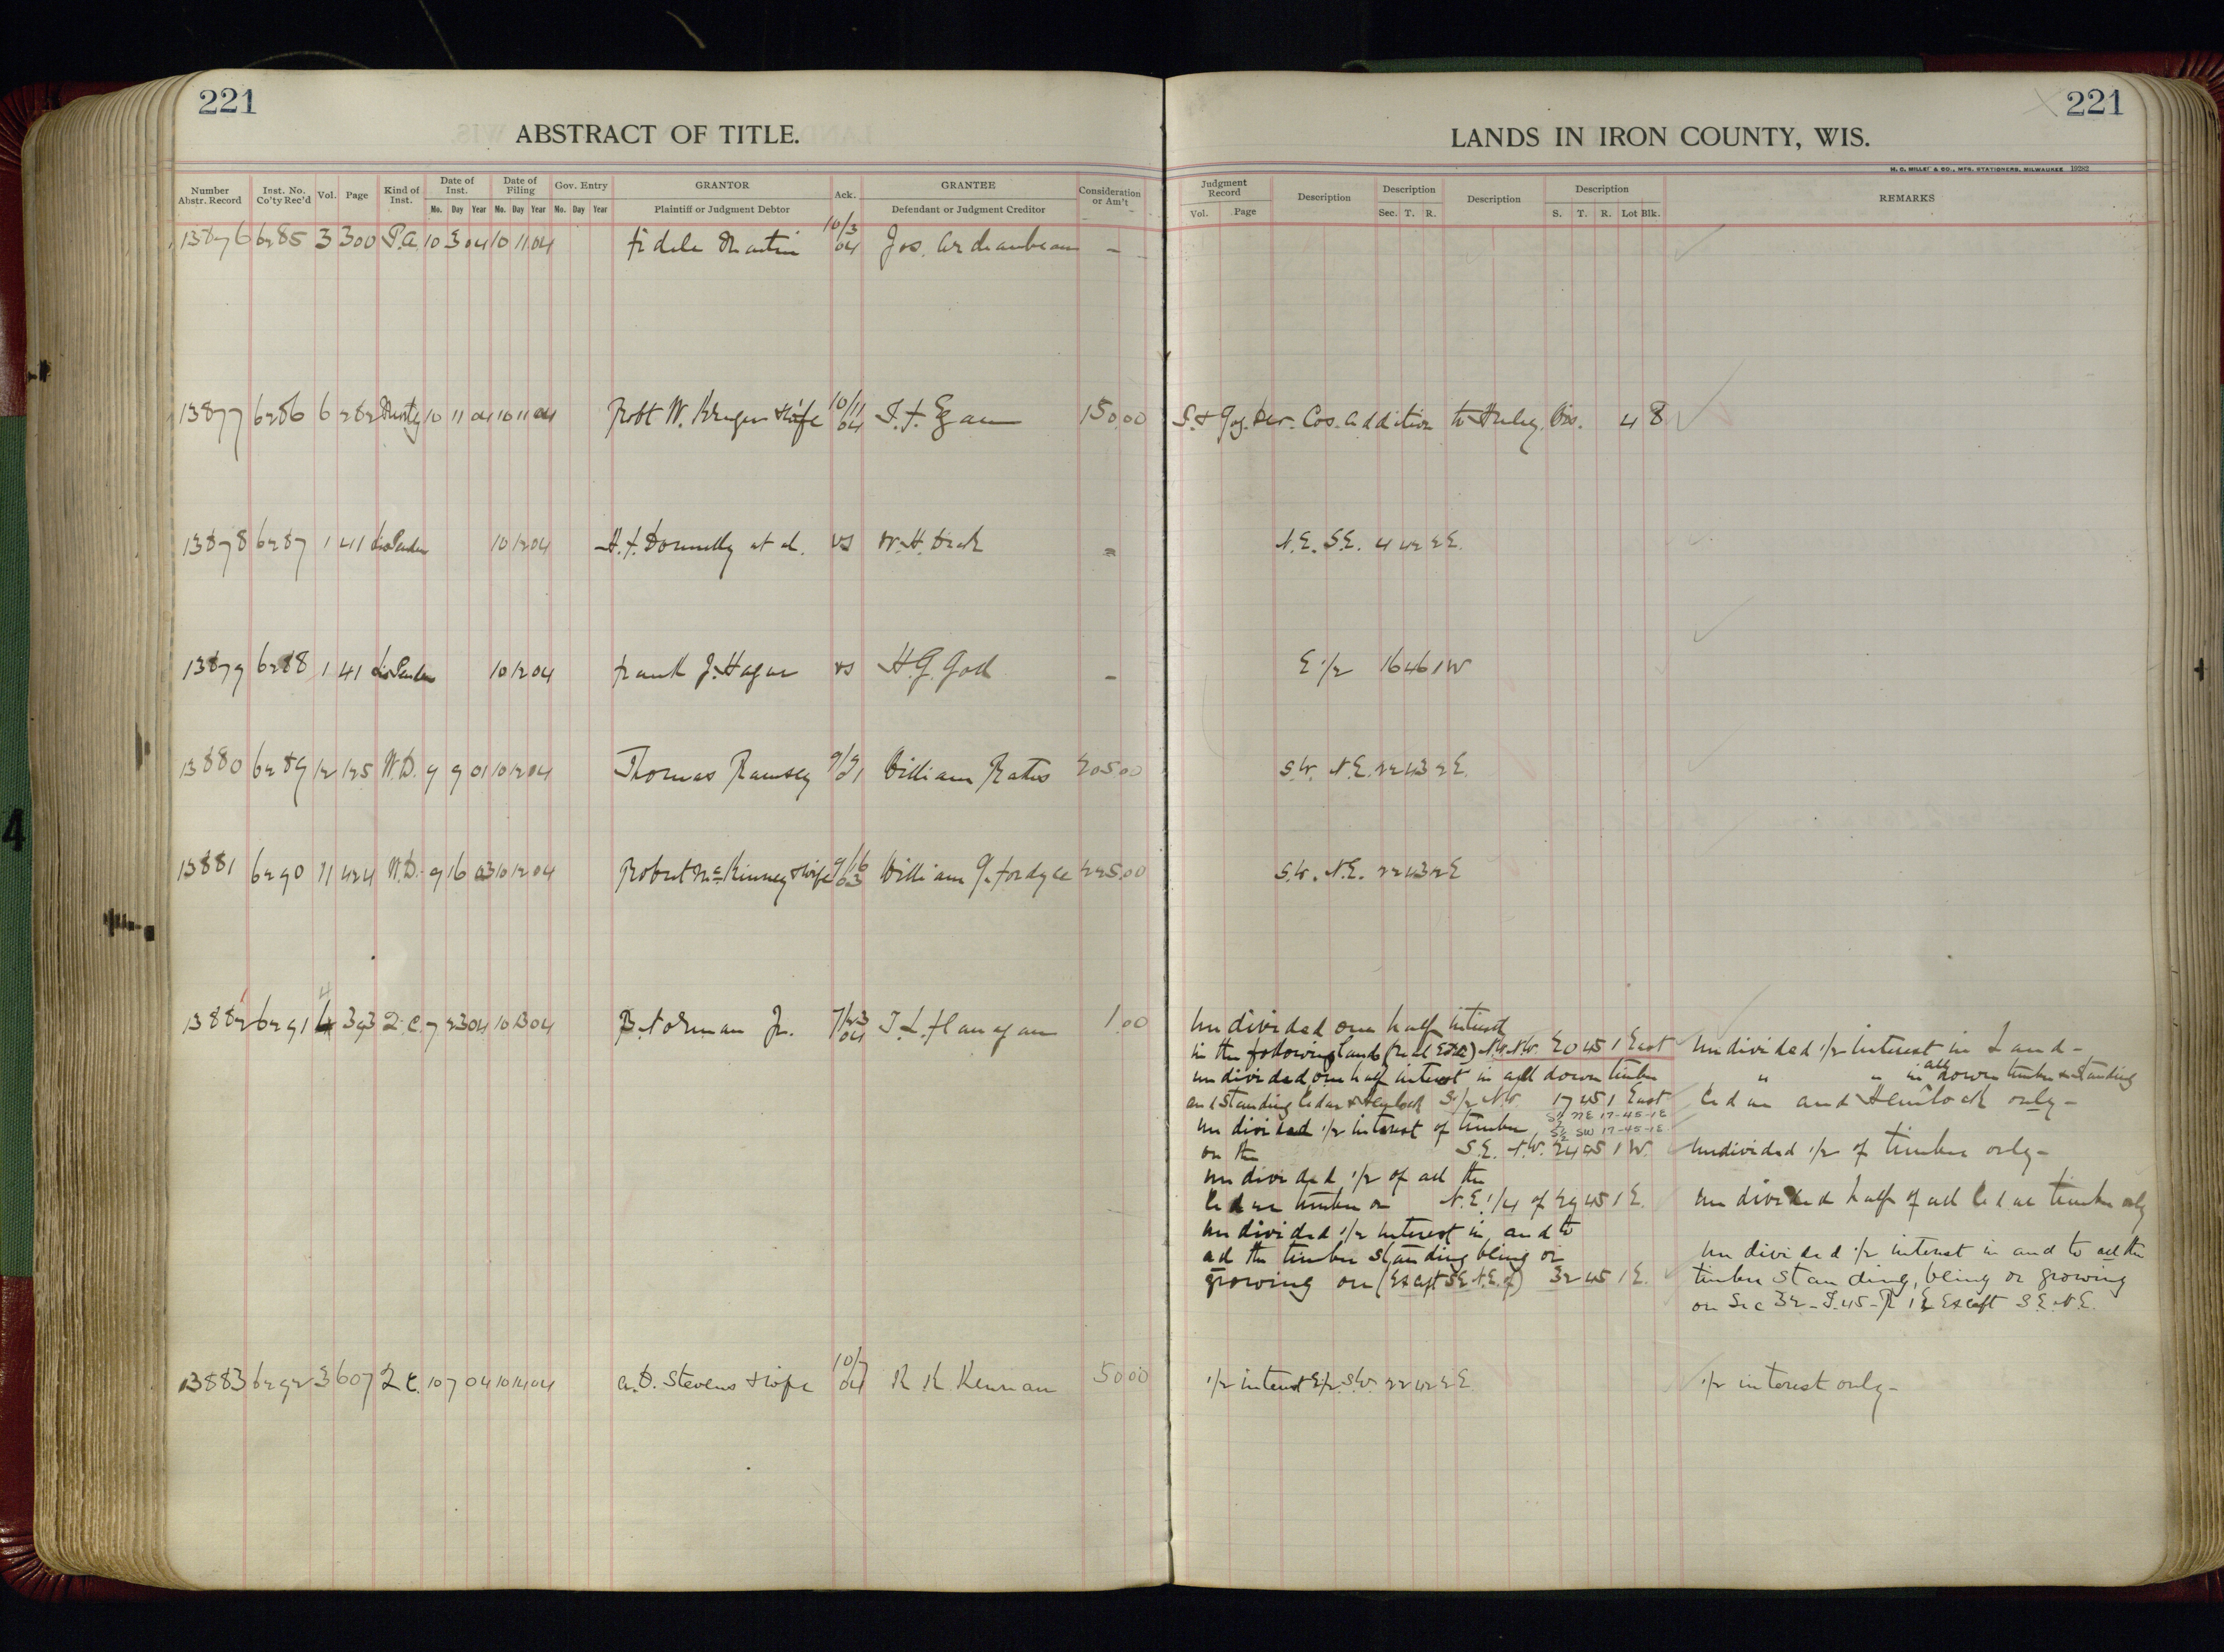 221
ABSTRACT OF TITLE.
Number Abstr. Record
Inst. No. Co'ty Rec'd
Vol.
Page
Kind of Inst.
Date of Inst.
Mo. Day Year
Date of Filing
Mo. Day Year
Gov. Entry
Mo. Day Year
GRANTOR
Plaintiff or Judgment Debtor
Ack.
GRANTEE
Defendant or Judgment Creditor
Consideration or Am't
13876 6285 3 300 P.A. 10 3 04 10 11 04 Fidele Martin 10/3 04 Jos. Archambeau -
13877 6286 6 282 Mortg 10 11 04 10 11 04 Robt W. Kruger & wife 10/11 04 T. F. Egan 150.00
13878 6287 1 41 Lis Penden 10 12 04 H. F. Donnelly et al. vs W. H. -
13879 6288 1 41 Lis Penden 10 12 04 Frank J. Hagar vs H. G. -
13880 6289 12 125 W.D. 9 9 01 10 12 04 Thomas Ramsey 9/9 1 William Bates 205.00
13881 6290 11 424 W.D. 9 16 03 10 12 04 Robert McKinney & wife 9/16 03 William G. Fordyce 225.00
13882 6291 4 393 Q.C. 7 23 04 10 13 04 B. Norman Jr. 7/23 04 T. L. Flanagan 1.00
13883 6292 3 607 Q.C. 10 7 04 10 14 04 A. D. Stevens & wife 10/7 04 K. K. Kennan 50 00
221
LANDS IN IRON COUNTY, WIS.
H. C. MILLER & CO., MFG. STATIONERS, MILWAUKEE 19282
Judgment Record
Vol. Page
Description
Description
Sec. T. R.
Description
Description
S. T. R. Lot Blk.
REMARKS
Addition to Hurley, Wis. 4 8
N.E. S.E. 4 42 2 E.
E 1/2 16 46 1 W
S.W. N.E. 22 43 2 E.
S.W. N.E. 22 43 2 E
Undivided one half interest
in the following lands (Real Estate) N.W. N.W. 20 45 1 East Undivided 1/2 interest in Land -
undivided one half interest in all down timber " " in all down timber & standing
and standing Cedar & Hemlock S. 1/2 N.W. 17 45 1 East Cedar and Hemlock only -
S1/2 NE 17-45-1E
undivided 1/2 interest of timber S1/2 SW 17-45-1E
on the S.E. N.W. 24 45 1 W. Undivided 1/2 of timber only -
undivided 1/2 of all the
Cedar timber on N.E. 1/4 of 29 45 1 E. Undivided half of all Cedar timber only
undivided 1/2 interest in and to
all the timber standing being or Undivided 1/2 interest in and to all the
growing on (Except S.E. N.E. of) 32 45 1 E. timber standing, being or growing
on Sec 32 - T. 45 - R 1 E Except S.E. N.E.
1/2 interest E 1/2 S.W. 22 42 2 E. 1/2 interest only -